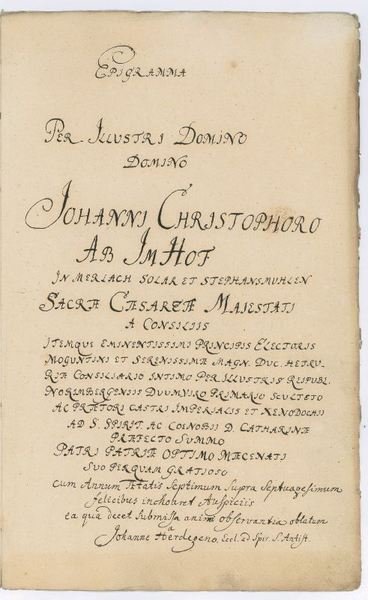 EPIGRAMMA
PER ILLUSTRI DOMINO
DOMINO
JOHANNI CHRISTOPHORO
AB IM HOF
IN MERLACH SOLAR ET STEPHANSMUHLEN
SACRÆ CÆSAREÆ MAIESTATI
A CONSILIIS
ITEMQUE EMINENTISSIMI PRINCIPIS ELECTORIS
MOGUNTINI ET SERENISSIMÆ MAGN. DUC. HETRU-
RIÆ CONSILIARIO INTIMO PER ILLUSTRIS REIPUBL.
NORIMBERGENSIS DUUMVIRO PRIMARIO SCULTETO
AC PRÆTORI CASTRI IMPERIALIS ET XENODOCHII
AD S. SPIRIT. AC COENOBII D. CATHARINÆ
PRÆFECTO SUMMO
PATRI PATRIÆ OPTIMO MÆCENATI
SUO PERQUAM GRATIOSO
cum Annum Ætatis Septimum Supra Septuagesimum
felicibus inchoaret Auspiciis
ea qua decet submissa animi observantia oblatum
a
Johanne Herdegeno, Eccl. ad Spir. S. Antist.